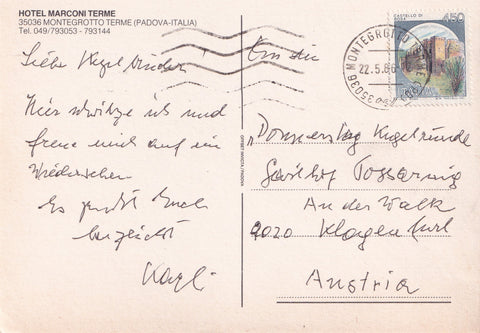 HOTEL MARCONI TERME
35036 MONTEGROTTO TERME (PADOVA-ITALIA)
Tel. 049/793053 - 793144
Liebe Kegelbrüder
Hier schwitze ich und
freue mich auf ein
Wiedersehen
Es grüßt Euch
herzlichst
Karli
OFFSET INVICTA / PADOVA
CASTELLO DI
450
35036 MONTEGROTTO TERME (PD)
22.5.86
An die
„Donnerstag Kegelrunde
Gasthof
An der Walk
9020 Klagenfurt
Austria